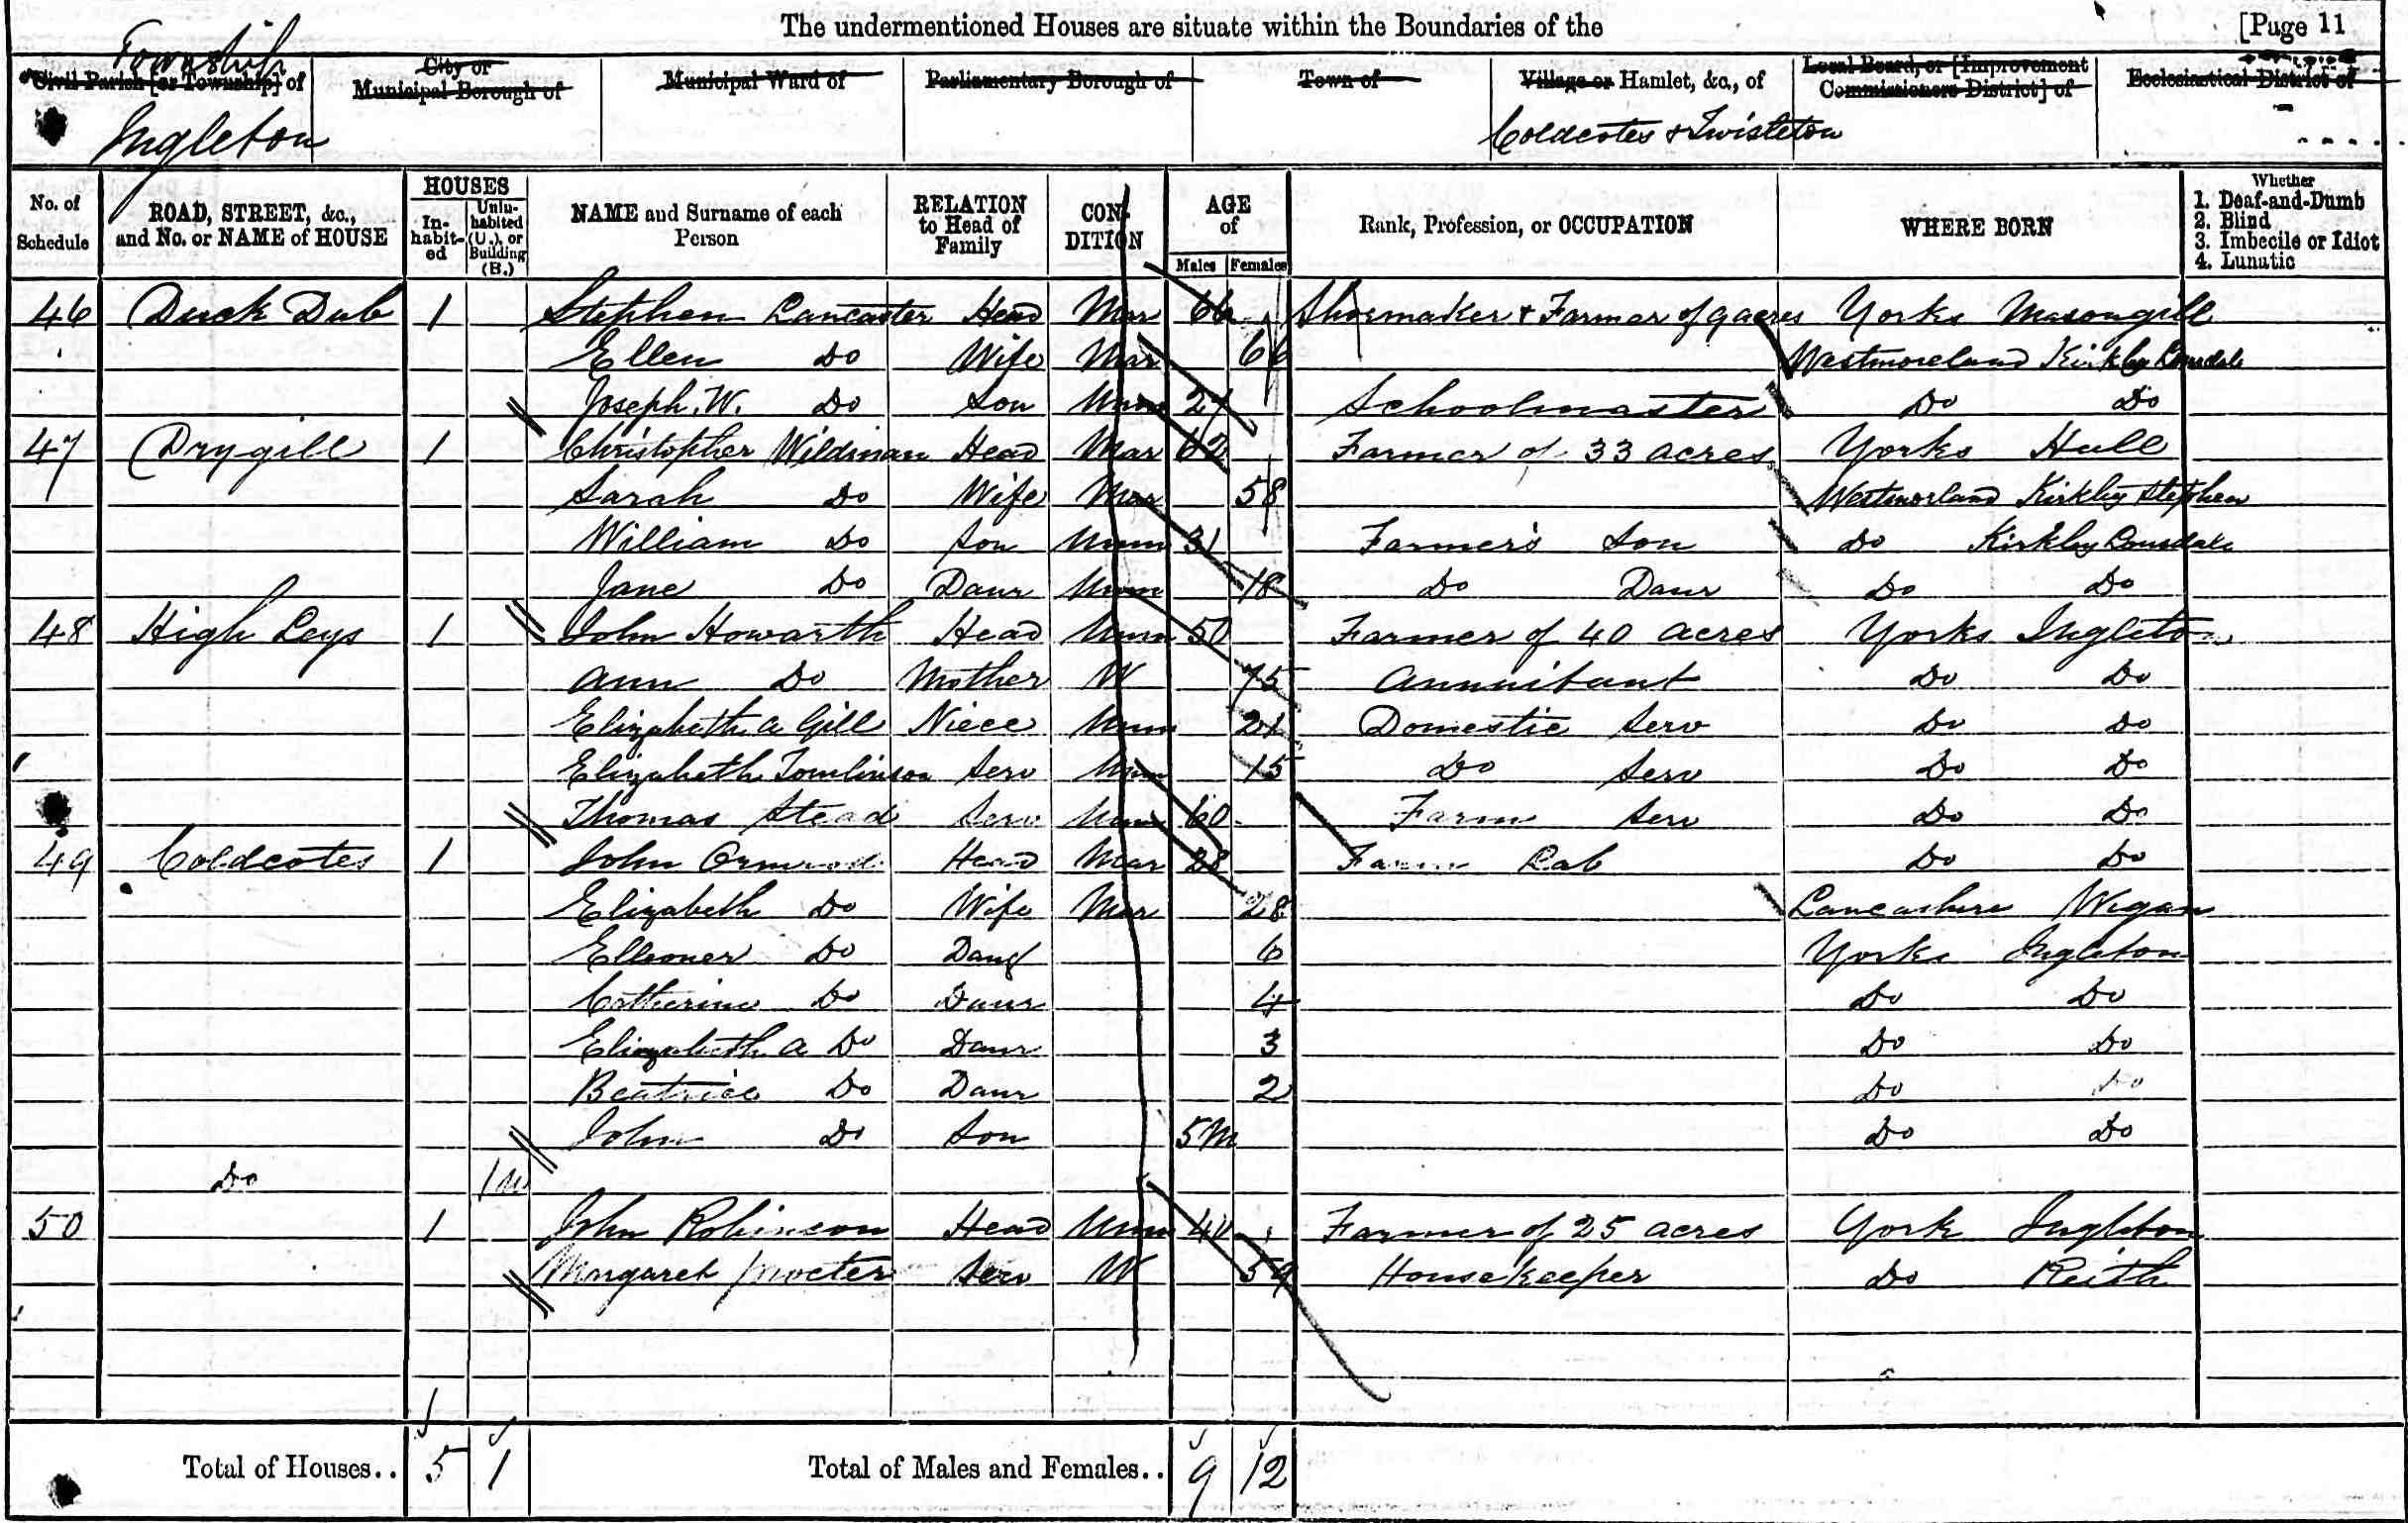 The undermentioned Houses are situate within the Boundaries of the [Page 11
Township
Civil Parish [or Township] of City or Municipal Borough of Municipal Ward of Parliamentary Borough of Town of Village or Hamlet, &c., of Local Board, or [Improvement Commissioners District] of Ecclesiastical District of
Ingleton Coldcotes & Twisleton
No. of Schedule ROAD, STREET, &c., and No. or NAME of HOUSE HOUSES Inhabited Uninhabited (U.), or Building (B.) NAME and Surname of each Person RELATION to Head of Family CONDITION AGE of Males Females Rank, Profession, or OCCUPATION WHERE BORN Whether 1. Deaf-and-Dumb 2. Blind 3. Imbecile or Idiot 4. Lunatic
46 Duck Dub 1 Stephen Lancaster Head Mar 66 Shoemaker & Farmer of 9 acres Yorks Masongill
Ellen Do Wife Mar 66 Westmoreland Kirkby Lonsdale
Joseph. W. Do Son Unm 27 Schoolmaster Do Do
47 Drygill 1 Christopher Wildman Head Mar 62 Farmer of 33 acres Yorks Hull
Sarah Do Wife Mar 58 Westmorland Kirkby Stephen
William Do Son Unm 31 Farmer's Son Do Kirkby Lonsdale
Jane Do Daur Unm 18 Do Daur Do Do
48 High Leys 1 John Howarth Head Unm 50 Farmer of 40 acres Yorks Ingleton
Ann Do Mother W 75 Annuitant Do Do
Elizabeth A Gill Niece Unm 21 Domestic Serv Do Do
Elizabeth Tomlinson Serv Unm 15 Do Serv Do Do
Thomas Stead Serv Unm 60 Farm Serv Do Do
49 Coldcotes 1 John Ormrod Head Mar 28 Farm Lab Do Do
Elizabeth Do Wife Mar 28 Lancashire Wigan
Elleoner Do Daug 6 Yorks Ingleton
Catherine Do Daur 4 Do Do
Elizabeth A Do Daur 3 Do Do
Beatrice Do Daur 2 Do Do
John Do Son 5m Do Do
Do 1u
50 1 John Robinson Head Unm 40 Farmer of 25 acres York Ingleton
Margaret Procter Serv W 59 Housekeeper Do Reith
Total of Houses.. 5 1 Total of Males and Females.. 9 12